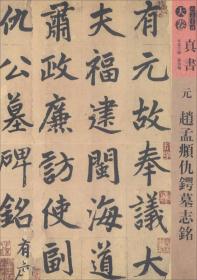 有元故奉議大
夫福建閩海道
肅政廉訪使副
仇公墓碑銘
有序
大卷
真書
元
趙孟頫仇鍔墓志銘